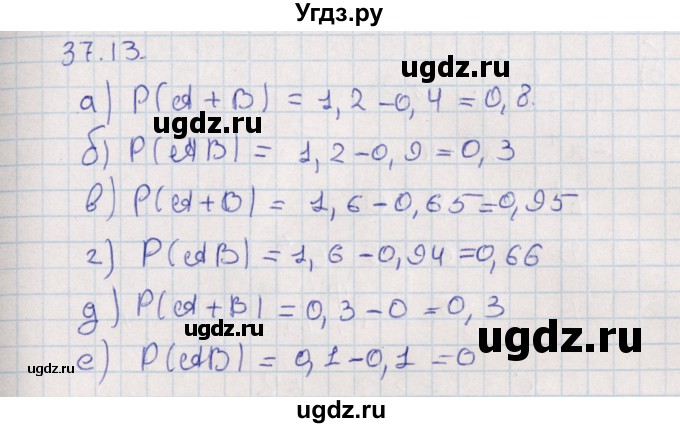 Угдз.ру
37.13.
а) P(A+B) = 1,2-0,4=0,8.
б) P(AB) = 1,2-0,9=0,3
в) P(A+B) = 1,6-0,65=0,95
г) P(AB) = 1,6-0,94=0,66
д) P(A+B) = 0,3-0=0,3
е) P(AB) = 0,1-0,1=0
ugdz.ru
ugdz.ru
ugdz.ru
ugdz.ru
ugdz.ru
ugdz.ru
ugdz.ru
ugdz.ru
ugdz.ru